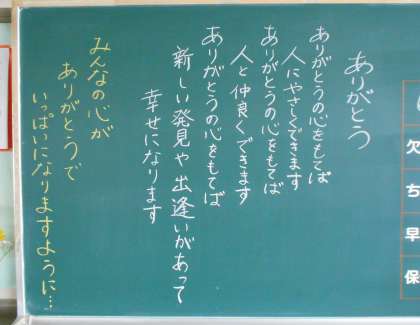 ありがとう
ありがとうの心をもてば
人にやさしくできます
ありがとうの心をもてば
人と仲良くできます
ありがとうの心をもてば
新しい発見や出逢いがあって
幸せになります
みんなの心が
ありがとうで
いっぱいになりますように…
欠
ち
早
保